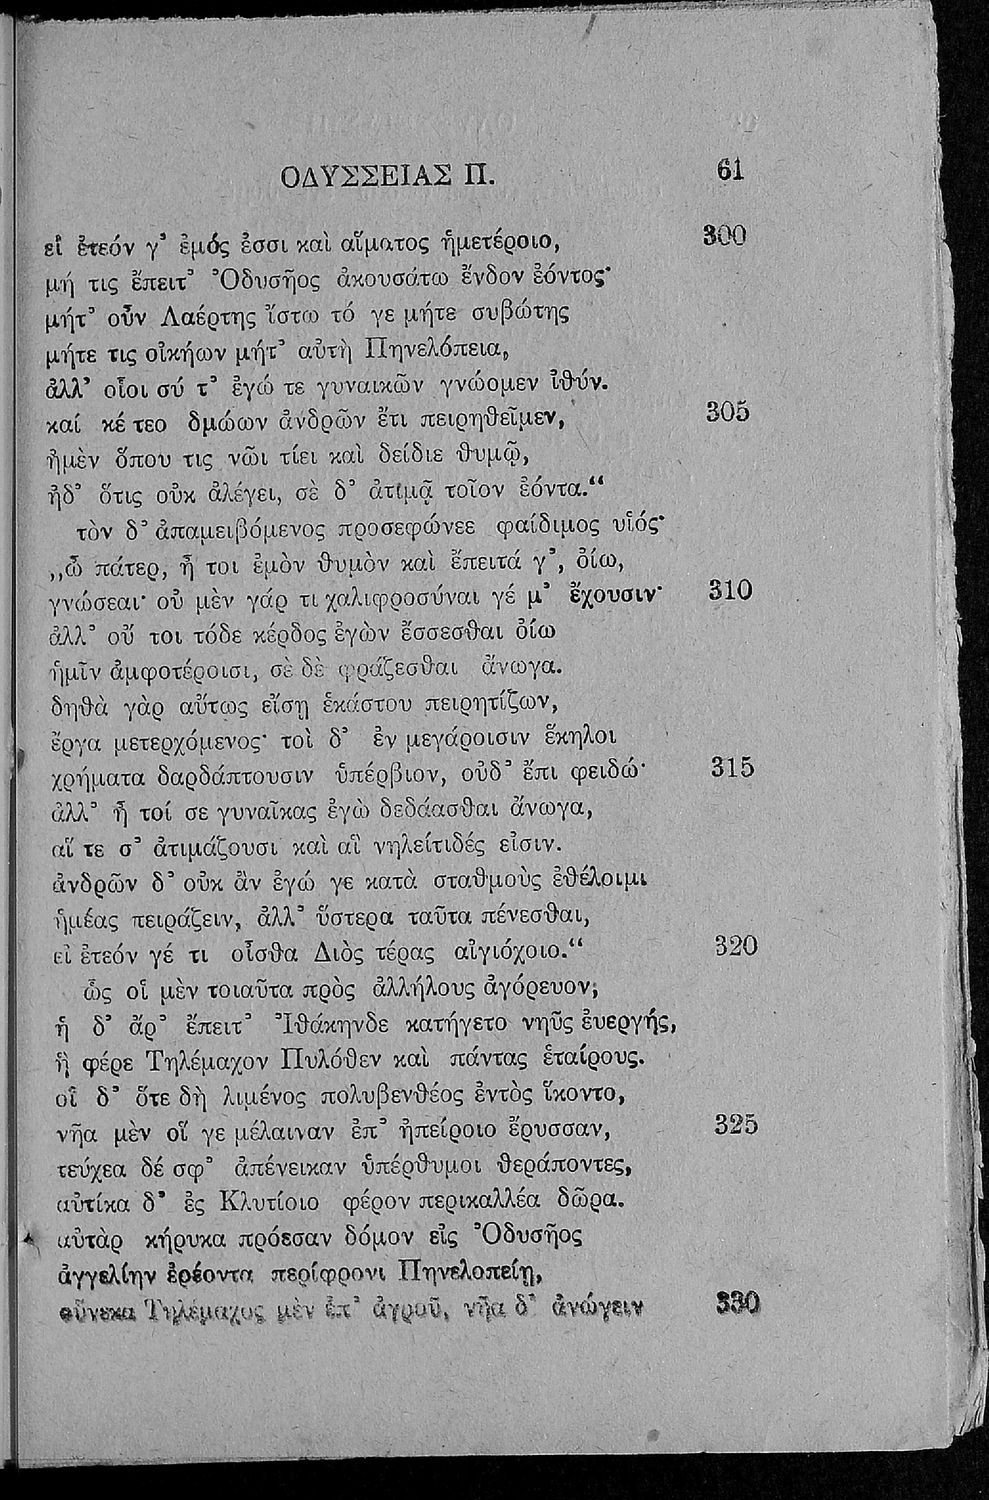 ΟΔΥΣΣΕΙΑΣ Π. 61
εἰ ἐτεόν γ᾽ ἐμός ἐσσι καὶ αἵματος ἡμετέροιο, 300
μή τις ἔπειτ᾽ Ὀδυσῆος ἀκουσάτω ἔνδον ἐόντος·
μήτ᾽ οὖν Λαέρτης ἴστω τό γε μήτε συβώτης
μήτε τις οἰκήων μήτ᾽ αὐτὴ Πηνελόπεια,
ἀλλ᾽ οἶοι σύ τ᾽ ἐγώ τε γυναικῶν γνώομεν ἰθύν.
καί κέ τεο δμώων ἀνδρῶν ἔτι πειρηθεῖμεν, 305
ἠμὲν ὅπου τις νῶι τίει καὶ δείδιε θυμῷ,
ἠδ᾽ ὅτις οὐκ ἀλέγει, σὲ δ᾽ ἀτιμᾷ τοῖον ἐόντα.“
τὸν δ᾽ ἀπαμειβόμενος προσεφώνεε φαίδιμος υἱός·
„ὦ πάτερ, ἦ τοι ἐμὸν θυμὸν καὶ ἔπειτά γ᾽, ὀίω,
γνώσεαι· οὐ μὲν γάρ τι χαλιφροσύναι γέ μ᾽ ἔχουσιν· 310
ἀλλ᾽ οὔ τοι τόδε κέρδος ἐγὼν ἔσσεσθαι ὀίω
ἡμῖν ἀμφοτέροισι, σὲ δὲ φράζεσθαι ἄνωγα.
δηθὰ γὰρ αὔτως εἴσῃ ἑκάστου πειρητίζων,
ἔργα μετερχόμενος· τοὶ δ᾽ ἐν μεγάροισιν ἕκηλοι
χρήματα δαρδάπτουσιν ὑπέρβιον, οὐδ᾽ ἔπι φειδώ· 315
ἀλλ᾽ ἦ τοί σε γυναῖκας ἐγὼ δεδάασθαι ἄνωγα,
αἵ τε σ᾽ ἀτιμάζουσι καὶ αἳ νηλείτιδές εἰσιν.
ἀνδρῶν δ᾽ οὐκ ἂν ἐγώ γε κατὰ σταθμοὺς ἐθέλοιμι
ἡμέας πειράζειν, ἀλλ᾽ ὕστερα ταῦτα πένεσθαι,
εἰ ἐτεόν γέ τι οἶσθα Διὸς τέρας αἰγιόχοιο.“ 320
ὣς οἱ μὲν τοιαῦτα πρὸς ἀλλήλους ἀγόρευον,
ἡ δ᾽ ἄρ᾽ ἔπειτ᾽ Ἰθάκηνδε κατήγετο νηῦς ἐυεργής,
ἣ φέρε Τηλέμαχον Πυλόθεν καὶ πάντας ἑταίρους.
οἳ δ᾽ ὅτε δὴ λιμένος πολυβενθέος ἐντὸς ἵκοντο,
νῆα μὲν οἵ γε μέλαιναν ἐπ᾽ ἠπείροιο ἔρυσσαν, 325
τεύχεα δέ σφ᾽ ἀπένεικαν ὑπέρθυμοι θεράποντες,
αὐτίκα δ᾽ ἐς Κλυτίοιο φέρον περικαλλέα δῶρα.
αὐτὰρ κήρυκα πρόεσαν δόμον εἰς Ὀδυσῆος
ἀγγελίην ἐρέοντα περίφρονι Πηνελοπείῃ,
οὕνεκα Τηλέμαχος μὲν ἐπ᾽ ἀγροῦ, νῆα δ᾽ ἀνώγειν 330